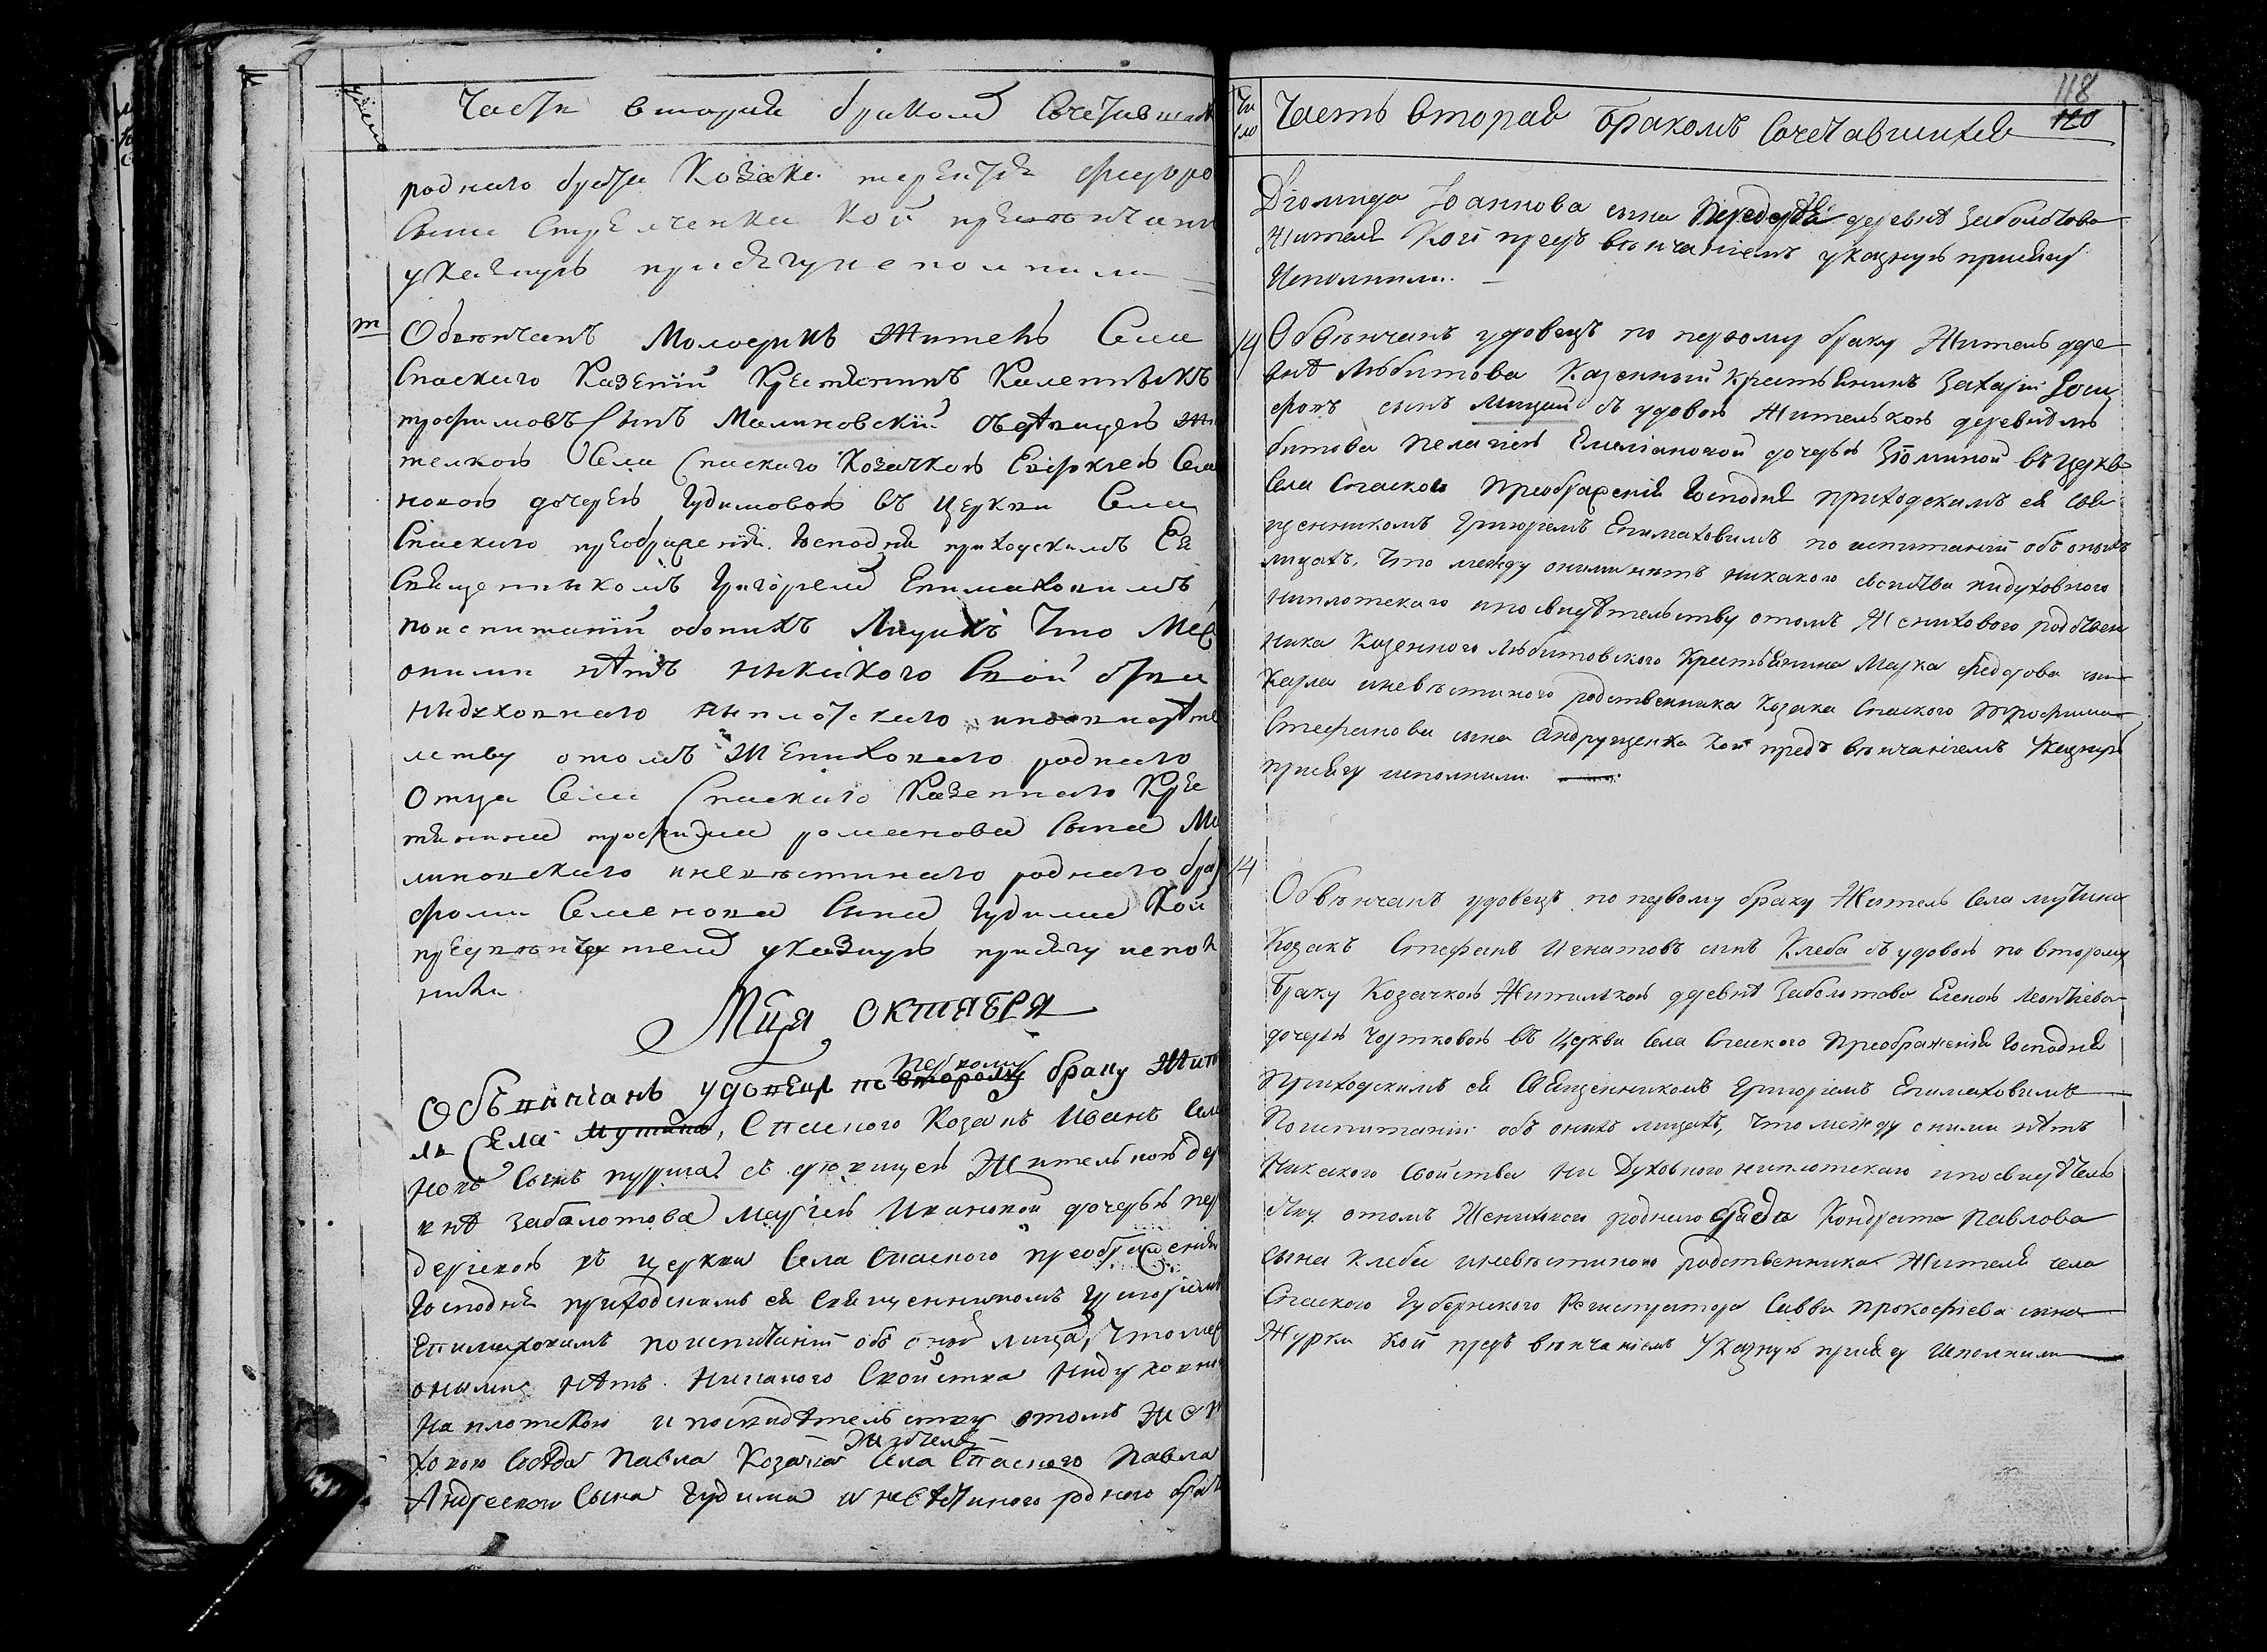 Число
Части вторыя бракомъ Сочетавшихся
роднаго брата Козака терентія федоро
Сына Стрелченка Кои предвѣнчаніе
указную присягу исполнили
Обвѣнчанъ Молодикъ Житель Села
Спаскаго Казеній Крестянинъ Калепникъ
трофимовъ Сынъ Малиновскій съ дѣвицею жи
телкою Села Спаскаго Козачкою Евфкіею Семе
новою дочерю Гудимовою въ церкви Села
Спаскаго преображенія Господня приходскимъ Ея
Священникомъ Григоріемъ Епимаховимъ
поиспитаній обонихъ Лицахъ Что Меж
оними нѣтъ никакого Свойства
нидуховнаго ниплотскаго ипосвидѣте
лству отомъ Жениховаго роднаго
Отца Села Спаскаго Казеннаго Кре
тянина трофима романова Сына Ма
линовскаго иневѣстинаго роднаго бра
фоми Семенова Сына Гудими Кои
предвѣнчателн указную присягу испол
нили
Мца ОКТЯБРЯ
первому
Обвѣнчанъ удовецъ по второму браку Жите
ль Села Мутина, Спаского Козакъ Иванъ Семе
новъ Сынъ пурига съ дѣвицею Жителькою дер
внѣ Заболотова Маріею Ивановой дочерью пере
деріевою въ церкви Села Спаского преображенія
Господня приходскимъ ея Священникомъ Григоріемъ
Епимаховимъ поиспитаніи объ онихъ лицахъ, Что меж
оними нѣтъ никакого Свойства нидуховна
на плотского и посвидѣтельству отомъ Жени
Жителя
хового Сосѣда Павла Козака Села Спаского Павла
Андреева Сына Гудима и невѣстиного родного брата
118
120
Чи
сло
Часть вторая Бракомъ Сочетавшихся
Діомида Іоаннова сына передерѣя деревнѣ Заболотова
Жителя Кои предъ вѣнчаніемъ указную присягу
Исполнили.
14
Обвѣнчанъ удовецъ по первому браку Житель дере
внѣ Любитова Казенный крестьянинъ Захарій Іоси
фовъ сынъ Мицай съ удовою Жителькою деревнѣ Лю
битова Пелагіею Емеліановой дочерью Зюминой въ церкве
Села Спаского Преображенія Господня приходскимъ ея Свя
щенникомъ Григоріемъ Епимаховимъ по испитаній объ онихъ
лицахъ, Что между оними нѣтъ никакого свойства нидуховного
ниплотскаго ипосвидѣтельству отомъ Женихового родствен
ника Казенного Любитовского Крестьянина Марка Федорова сына
Карла иневѣстиного родственника Козака Спаского Трофима
Стефанова сына Андрущенка Кои предъ вѣнчаніемъ Указную
присягу исполнили.
14
Обвѣнчанъ удовецъ по первому браку Житель Села Мутина
Козакъ Стефанъ Игнатовъ сынъ Клеба съ удовою по второму
Браку Козачкою Жителькою деревнѣ Заболотова Еленою Леонтіева
дочерью Чортковою въ Церкви Села Спаского Преображенія Господня
Приходскимъ ея Священникомъ Григоріемъ Епимаховимъ
По испитаній объ онихъ лицахъ, Что между оними нѣтъ
Никакого Свойства ни Духовного ниплотскаго ипосвидѣтель
ству отомъ Женихвого родного Кондрата Павлова
сына Клеби иневѣстиного родственника Жителя села
Спаского Губернского Регистратора Савви Прокофіева сына
Журки Кои предъ вѣнчаніемъ Указную присягу Исполнили